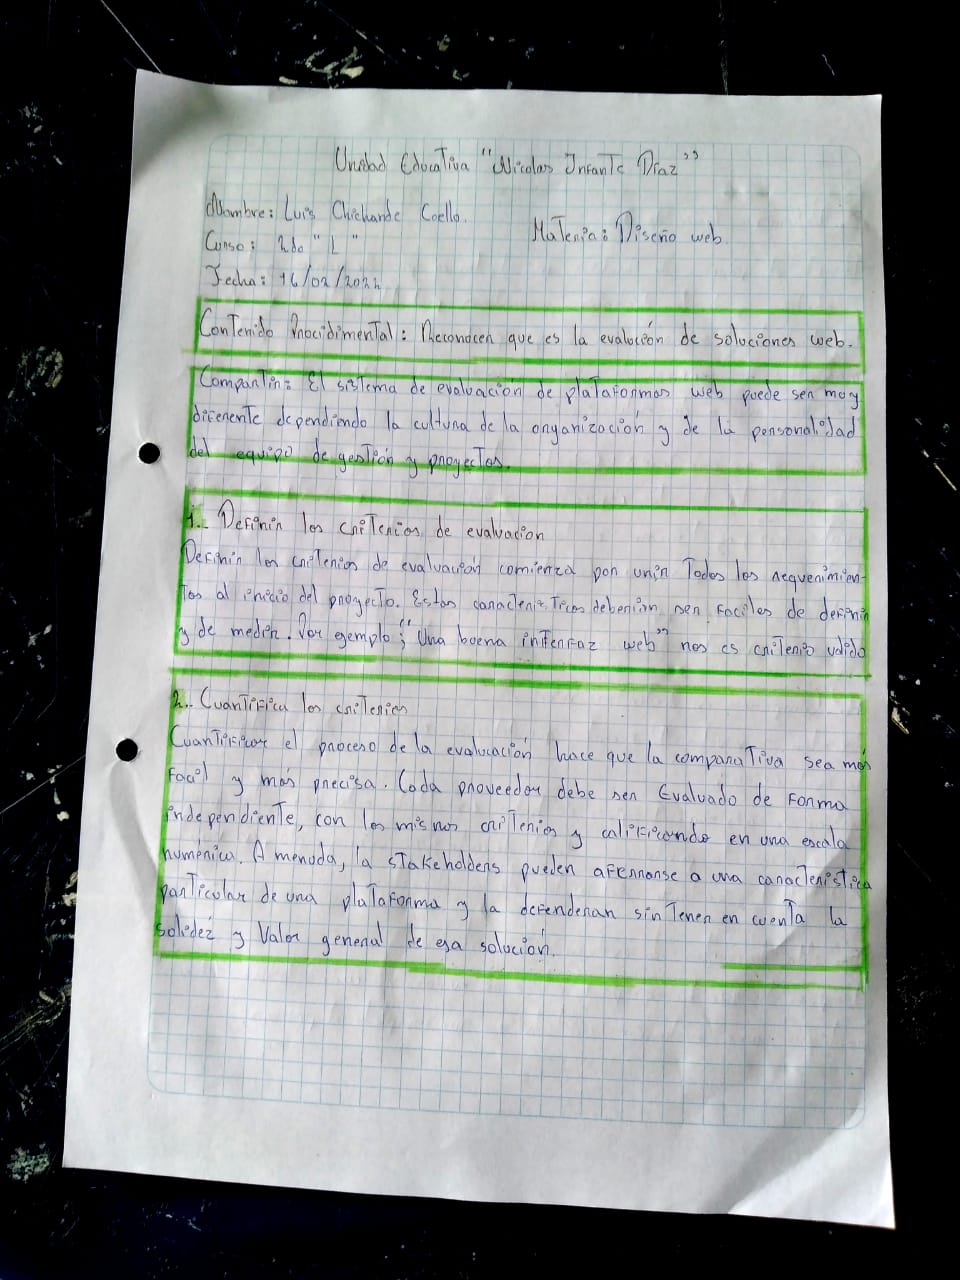 Unidad Educativa "Nicolas Infante Díaz"
Nombre: Luis Chichande Coello.
Materia: Diseño web.
Curso: 2do "L"
Fecha: 16/02/2022
Contenido Procidimental: Reconocer que es la evalución de soluciones web.
Compartir: El sistema de evaluación de plataformas web puede ser muy
diferente dependiendo la cultura de la organización y de la personalidad
del equipo de gestión y proyectos.
1.. Definir los criterios de evaluacion
Definir los criterios de evaluación comienza por unir Todos los requerimien-
tos al inicio del proyecto. Estas caracteristicas deberían ser faciles de definir
y de medir. Por ejemplo; "Una buena interfaz web" nos es criterio valido
2.. Cuantifica los criterios
Cuantificar el proceso de la evalucación hace que la comparativa sea más
facil y más precisa. Cada proveedor debe ser Evaluado de forma
independiente, con los mismos criterios y calificando en una escala
numérica. A menuda, la stakeholders pueden aferrarse a una característica
particular de una plataforma y la defenderan sin tener en cuenta la
solidéz y Valor general de esa solución.